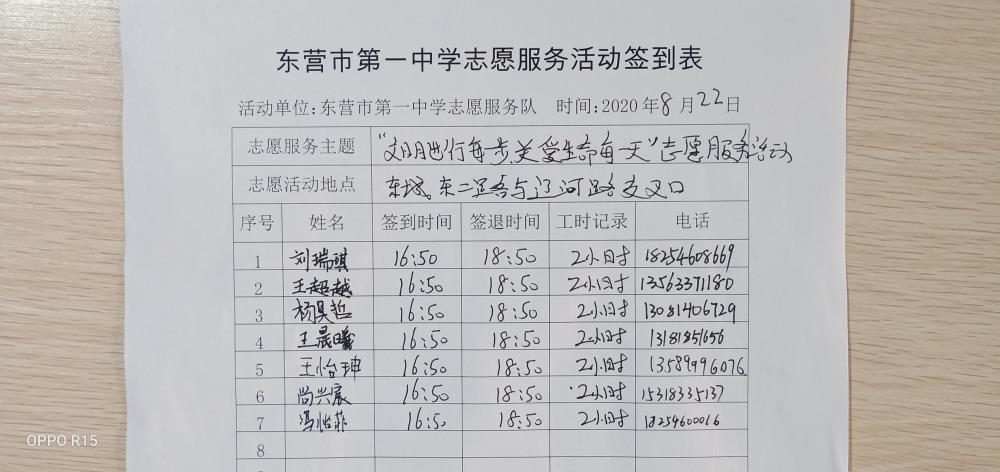 东营市第一中学志愿服务活动签到表
活动单位:东营市第一中学志愿服务队 时间:2020年8月22日
志愿服务主题 “文明出行每一步,关爱生命每一天”志愿服务活动
志愿活动地点 东城东二路与辽河路交叉口
序号 姓名 签到时间 签退时间 工时记录 电话
1 刘瑞祺 16:50 18:50 2小时 18254608669
2 王超越 16:50 18:50 2小时 13563371180
3 杨昊哲 16:50 18:50 2小时 13081406729
4 王晨曦 16:50 18:50 2小时 13181851656
5 王怡珅 16:50 18:50 2小时 13589996076
6 尚兴宸 16:50 18:50 2小时 15318335137
7 冯怡菲 16:50 18:50 2小时 18254600016
8
OPPO R15